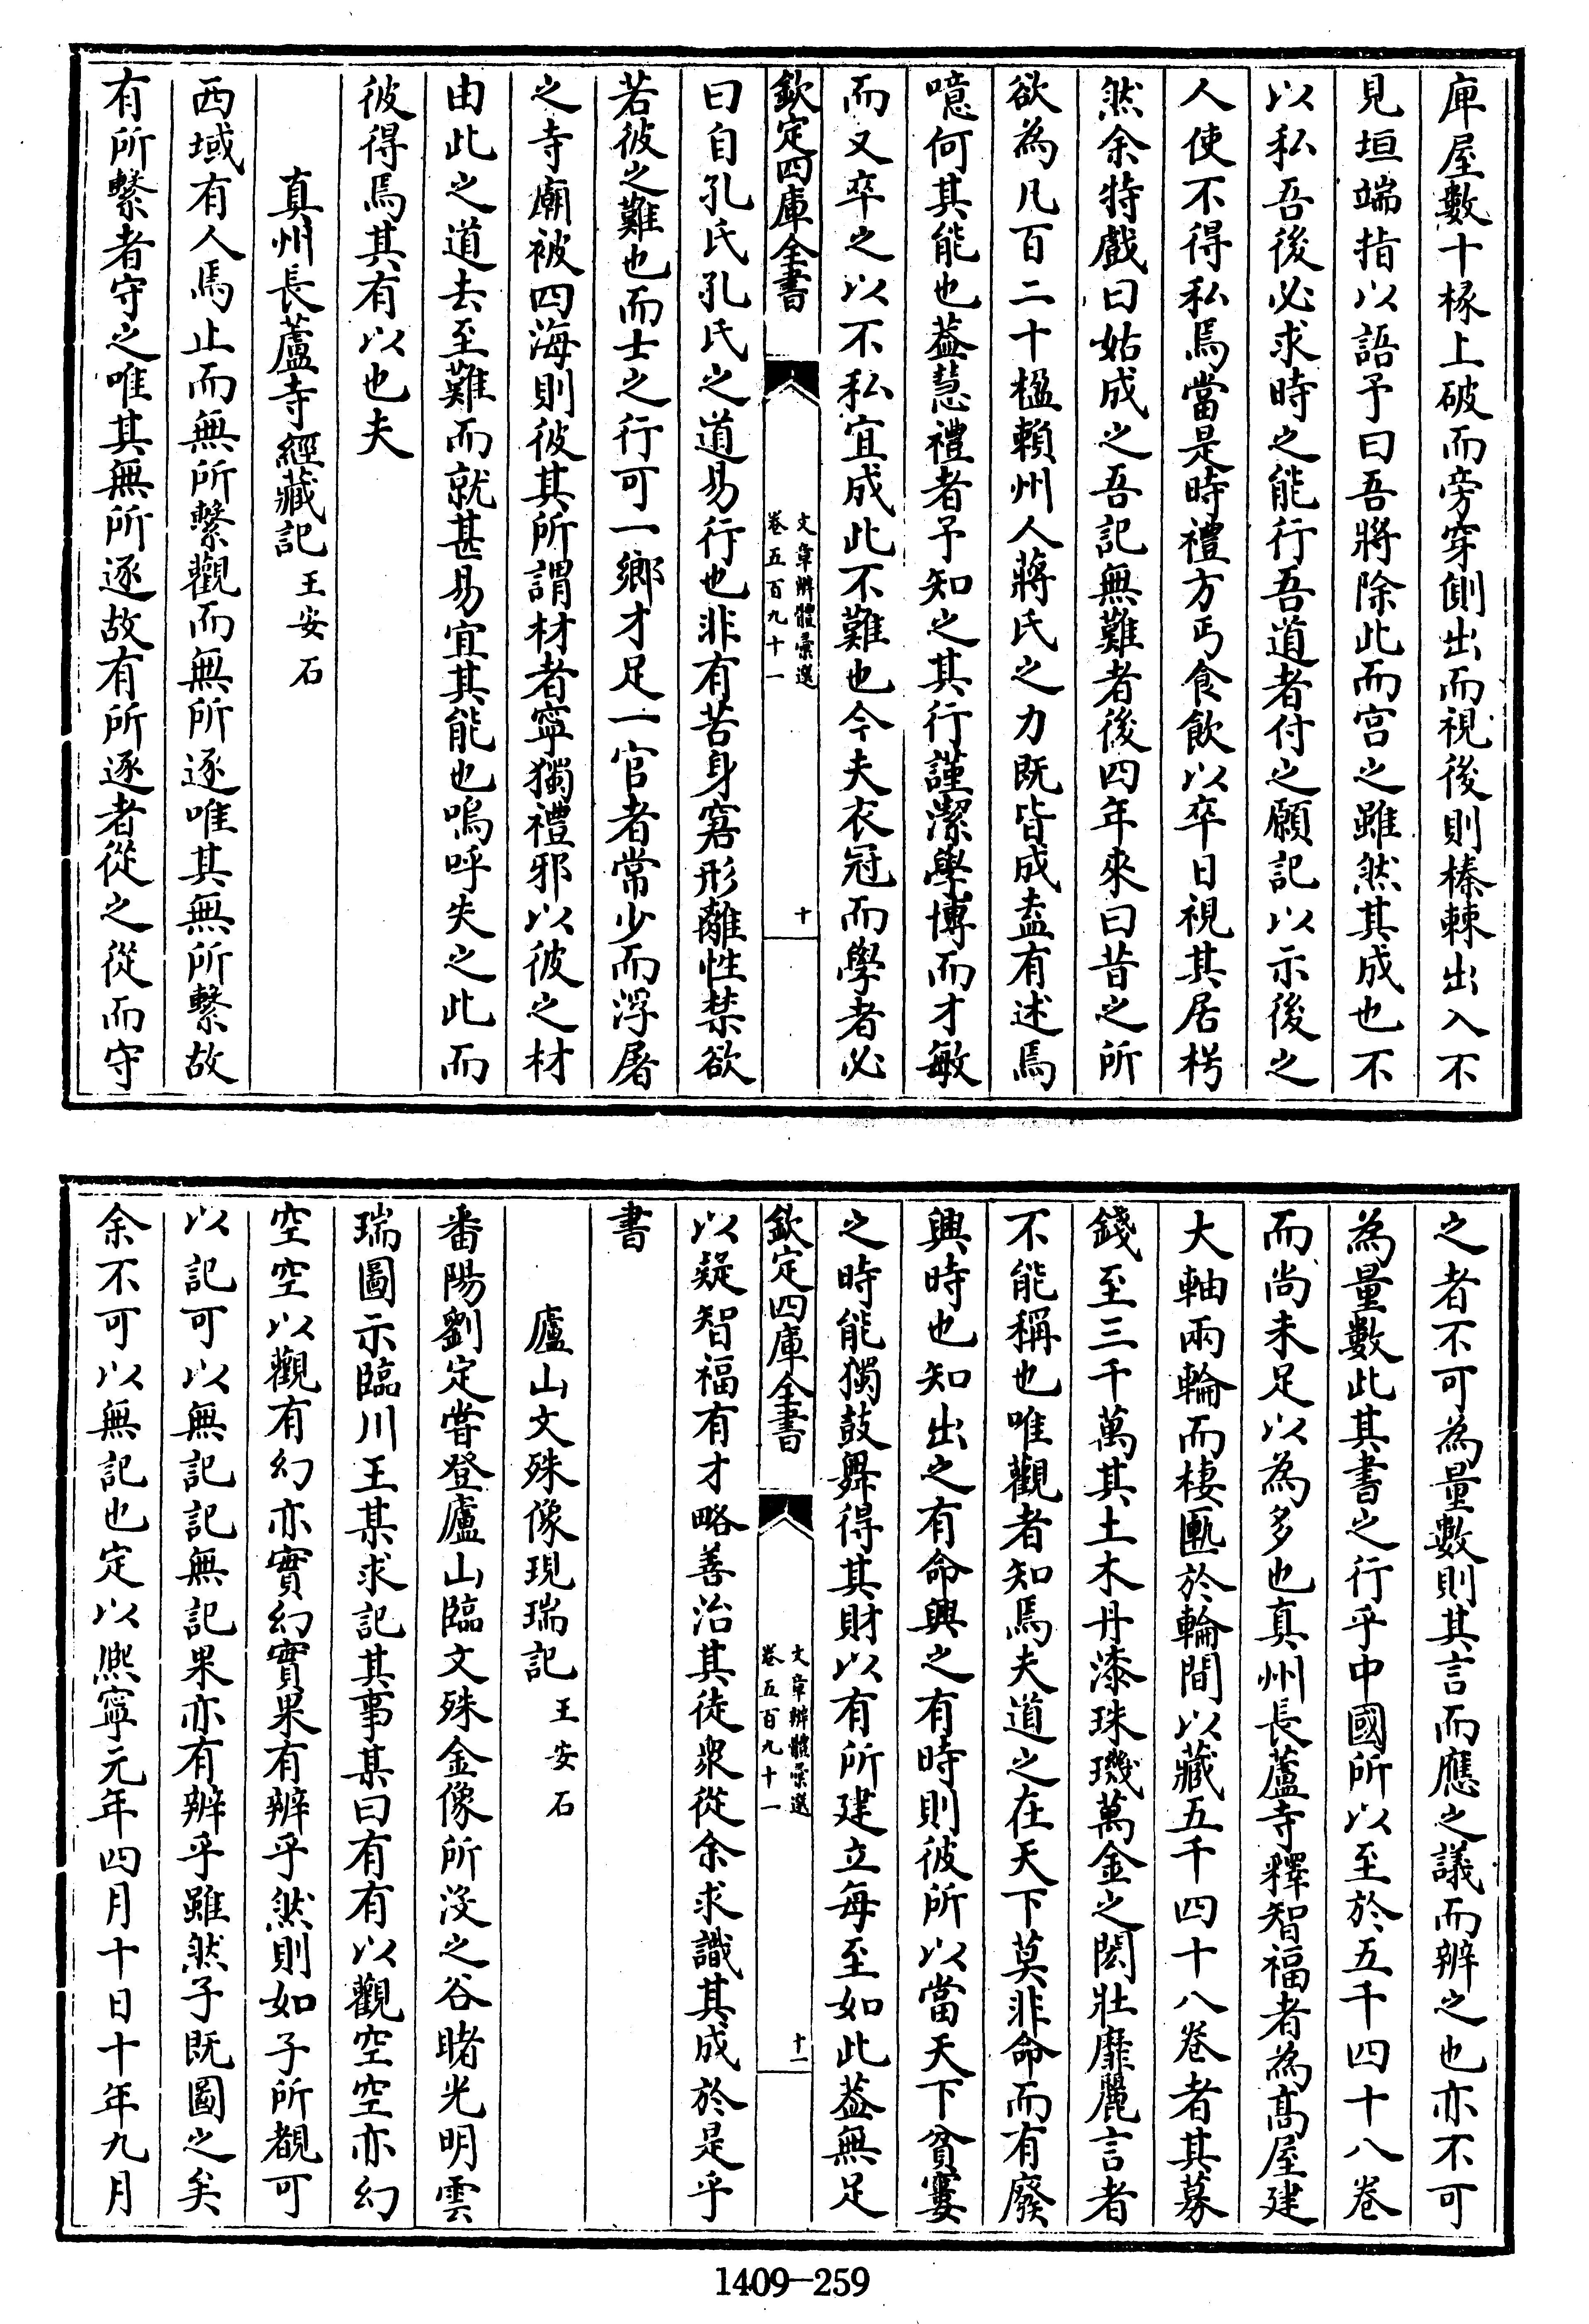 庳屋數十椽上破而旁穿側出而視後則榛棘出入不
見垣端指以語予曰吾將除此而宫之雖然其成也不
以私吾後必求時之能行吾道者付之願記以示後之
人使不得私焉當是時禮方丐食飲以卒日視其居枵
然余特戲曰姑成之吾記無難者後四年來曰昔之所
欲為凡百二十楹賴州人蔣氏之力既皆成盍有述焉
噫何其能也葢慧禮者予知之其行謹潔學博而才敏
而又卒之以不私宜成此不難也今夫衣冠而學者必
欽定四庫全書
文章辨體彚選
卷五百九十一
十
曰自孔氏孔氏之道易行也非有苦身窘形離性禁欲
若彼之難也而士之行可一鄉才足一官者常少而浮屠
之寺廟被四海則彼其所謂材者寧獨禮邪以彼之材
由此之道去至難而就甚易宜其能也嗚呼失之此而
彼得焉其有以也夫
真州長蘆寺經藏記王安石
西域有人焉止而無所繫觀而無所逐唯其無所繫故
有所繫者守之唯其無所逐故有所逐者從之從而守
之者不可為量數則其言而應之議而辨之也亦不可
為量數此其書之行乎中國所以至於五千四十八卷
而尚未足以為多也真州長蘆寺釋智福者為髙屋建
大軸兩輪而棲匭於輪間以藏五千四十八卷者其募
錢至三千萬其土木丹漆珠璣萬金之閎壯靡麗言者
不能稱也唯觀者知焉夫道之在天下莫非命而有廢
興時也知出之有命興之有時則彼所以當天下貧窶
之時能獨鼓舞得其財以有所建立每至如此葢無足
欽定四庫全書
文章辨體彚選
卷五百九十一
十一
以疑智福有才略善治其徒衆從余求識其成於是乎
書
廬山文殊像現瑞記王安石
番陽劉定甞登廬山臨文殊金像所没之谷睹光明雲
瑞圖示臨川王某求記其事某曰有有以觀空空亦幻
空空以觀有幻亦實幻實果有辨乎然則如子所覩可
以記可以無記記無記果亦有辨乎雖然子既圖之矣
余不可以無記也定以熈寧元年四月十日十年九月
1409—259